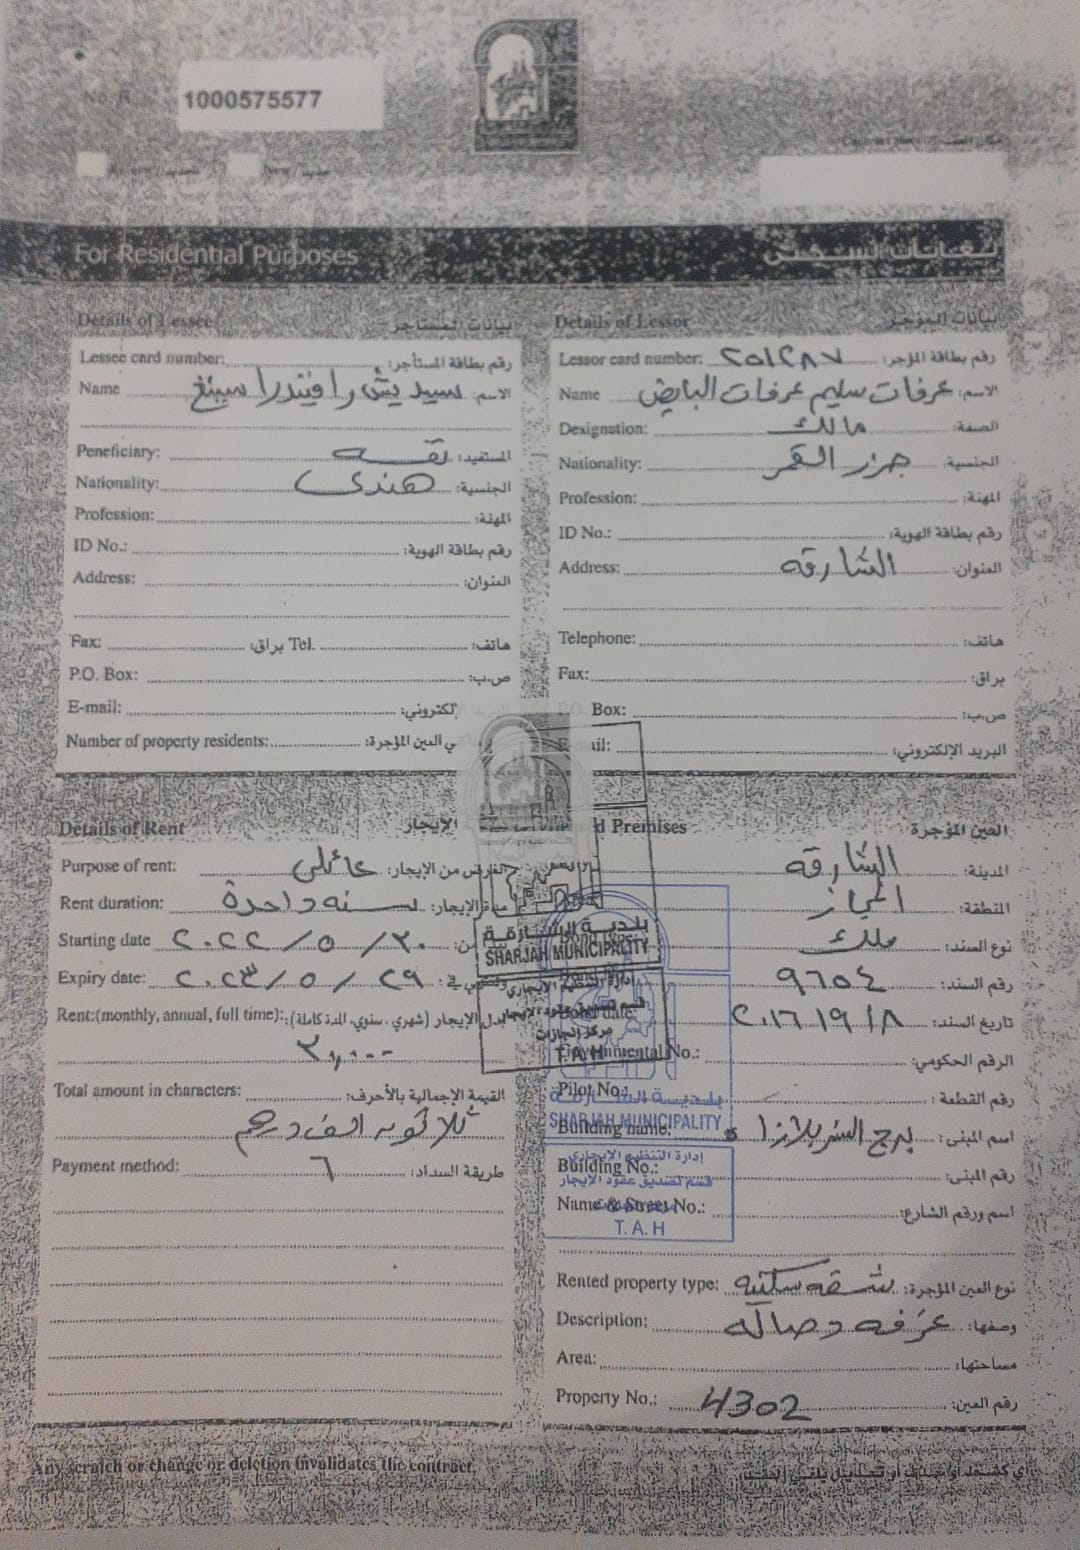 No. R 1000575577
Renew / تجديد New / جديد
For Residential Purposes للغايات السكني
Details of Lessee بيانات المستأجر
Lessee card number: رقم بطاقة المستأجر:
Name سيديش رافيندرا سينغ الاسم:
Peneficiary: نفسه المستفيد:
Nationality: هندي الجنسية:
Profession: المهنة:
ID No.: رقم بطاقة الهوية:
Address: العنوان:
Fax: براق: Tel. هاتف:
P.O. Box: ص.ب:
E-mail: إلكتروني:
Number of property residents: ي العين المؤجرة:
Details of Lessor بيانات المؤجر
Lessor card number: رقم بطاقة المؤجر:
Name عرفات سليم عرفات البايض الاسم:
Designation: مالك الصفة:
Nationality: جزر القمر الجنسية:
Profession: المهنة:
ID No.: رقم بطاقة الهوية:
Address: الشارقه العنوان:
Telephone: هاتف:
Fax: براق:
P.O. Box: ص.ب:
E-mail: البريد الإلكتروني:
Details of Rent الإيجار
Purpose of rent: عائلي الغرض من الإيجار:
Rent duration: سنه واحدة مدة الإيجار:
Starting date ٢٠٢٢/٥/٣٠ من:
Expiry date: ٢٠٢٣/٥/٢٩ وتنتهي في:
Rent:(monthly, annual, full time): بدل الإيجار (شهري، سنوي، المدة كاملة):
٣٠,٠٠٠-
Total amount in characters: القيمة الإجمالية بالأحرف:
ثلاثونه الف درهم
Payment method: ٦ طريقة السداد:
d Premises العين المؤجرة
الشارقه المدينة:
المجاز المنطقة:
ملك نوع السند:
٩٦٥٤ رقم السند:
date: ٢٠١٦/٩/٨ تاريخ السند:
Governmental No.: الرقم الحكومي:
Pilot No.: رقم القطعة:
Building name: برج السنر بلازا ١ اسم المبنى:
Building No.: رقم المبنى:
Name & Street No.: اسم ورقم الشارع:
Rented property type: شقه سكنيه نوع العين المؤجرة:
Description: غرفه وصاله وصفها:
Area: مساحتها:
Property No.: 4302 رقم العين:
بلدية الشارقة
SHARJAH MUNICIPALITY
إدارة التنظيم الإيجاري
قسم تصديق عقود الإيجار
مركز الجازات
T.A.H
بلدية الشارقة
SHARJAH MUNICIPALITY
إدارة التنظيم الإيجاري
قسم تصديق عقود الإيجار
T.A.H
Any scratch or change or deletion invalidates the contract. أي كشط أو حذف أو تعديل يلغي العقد